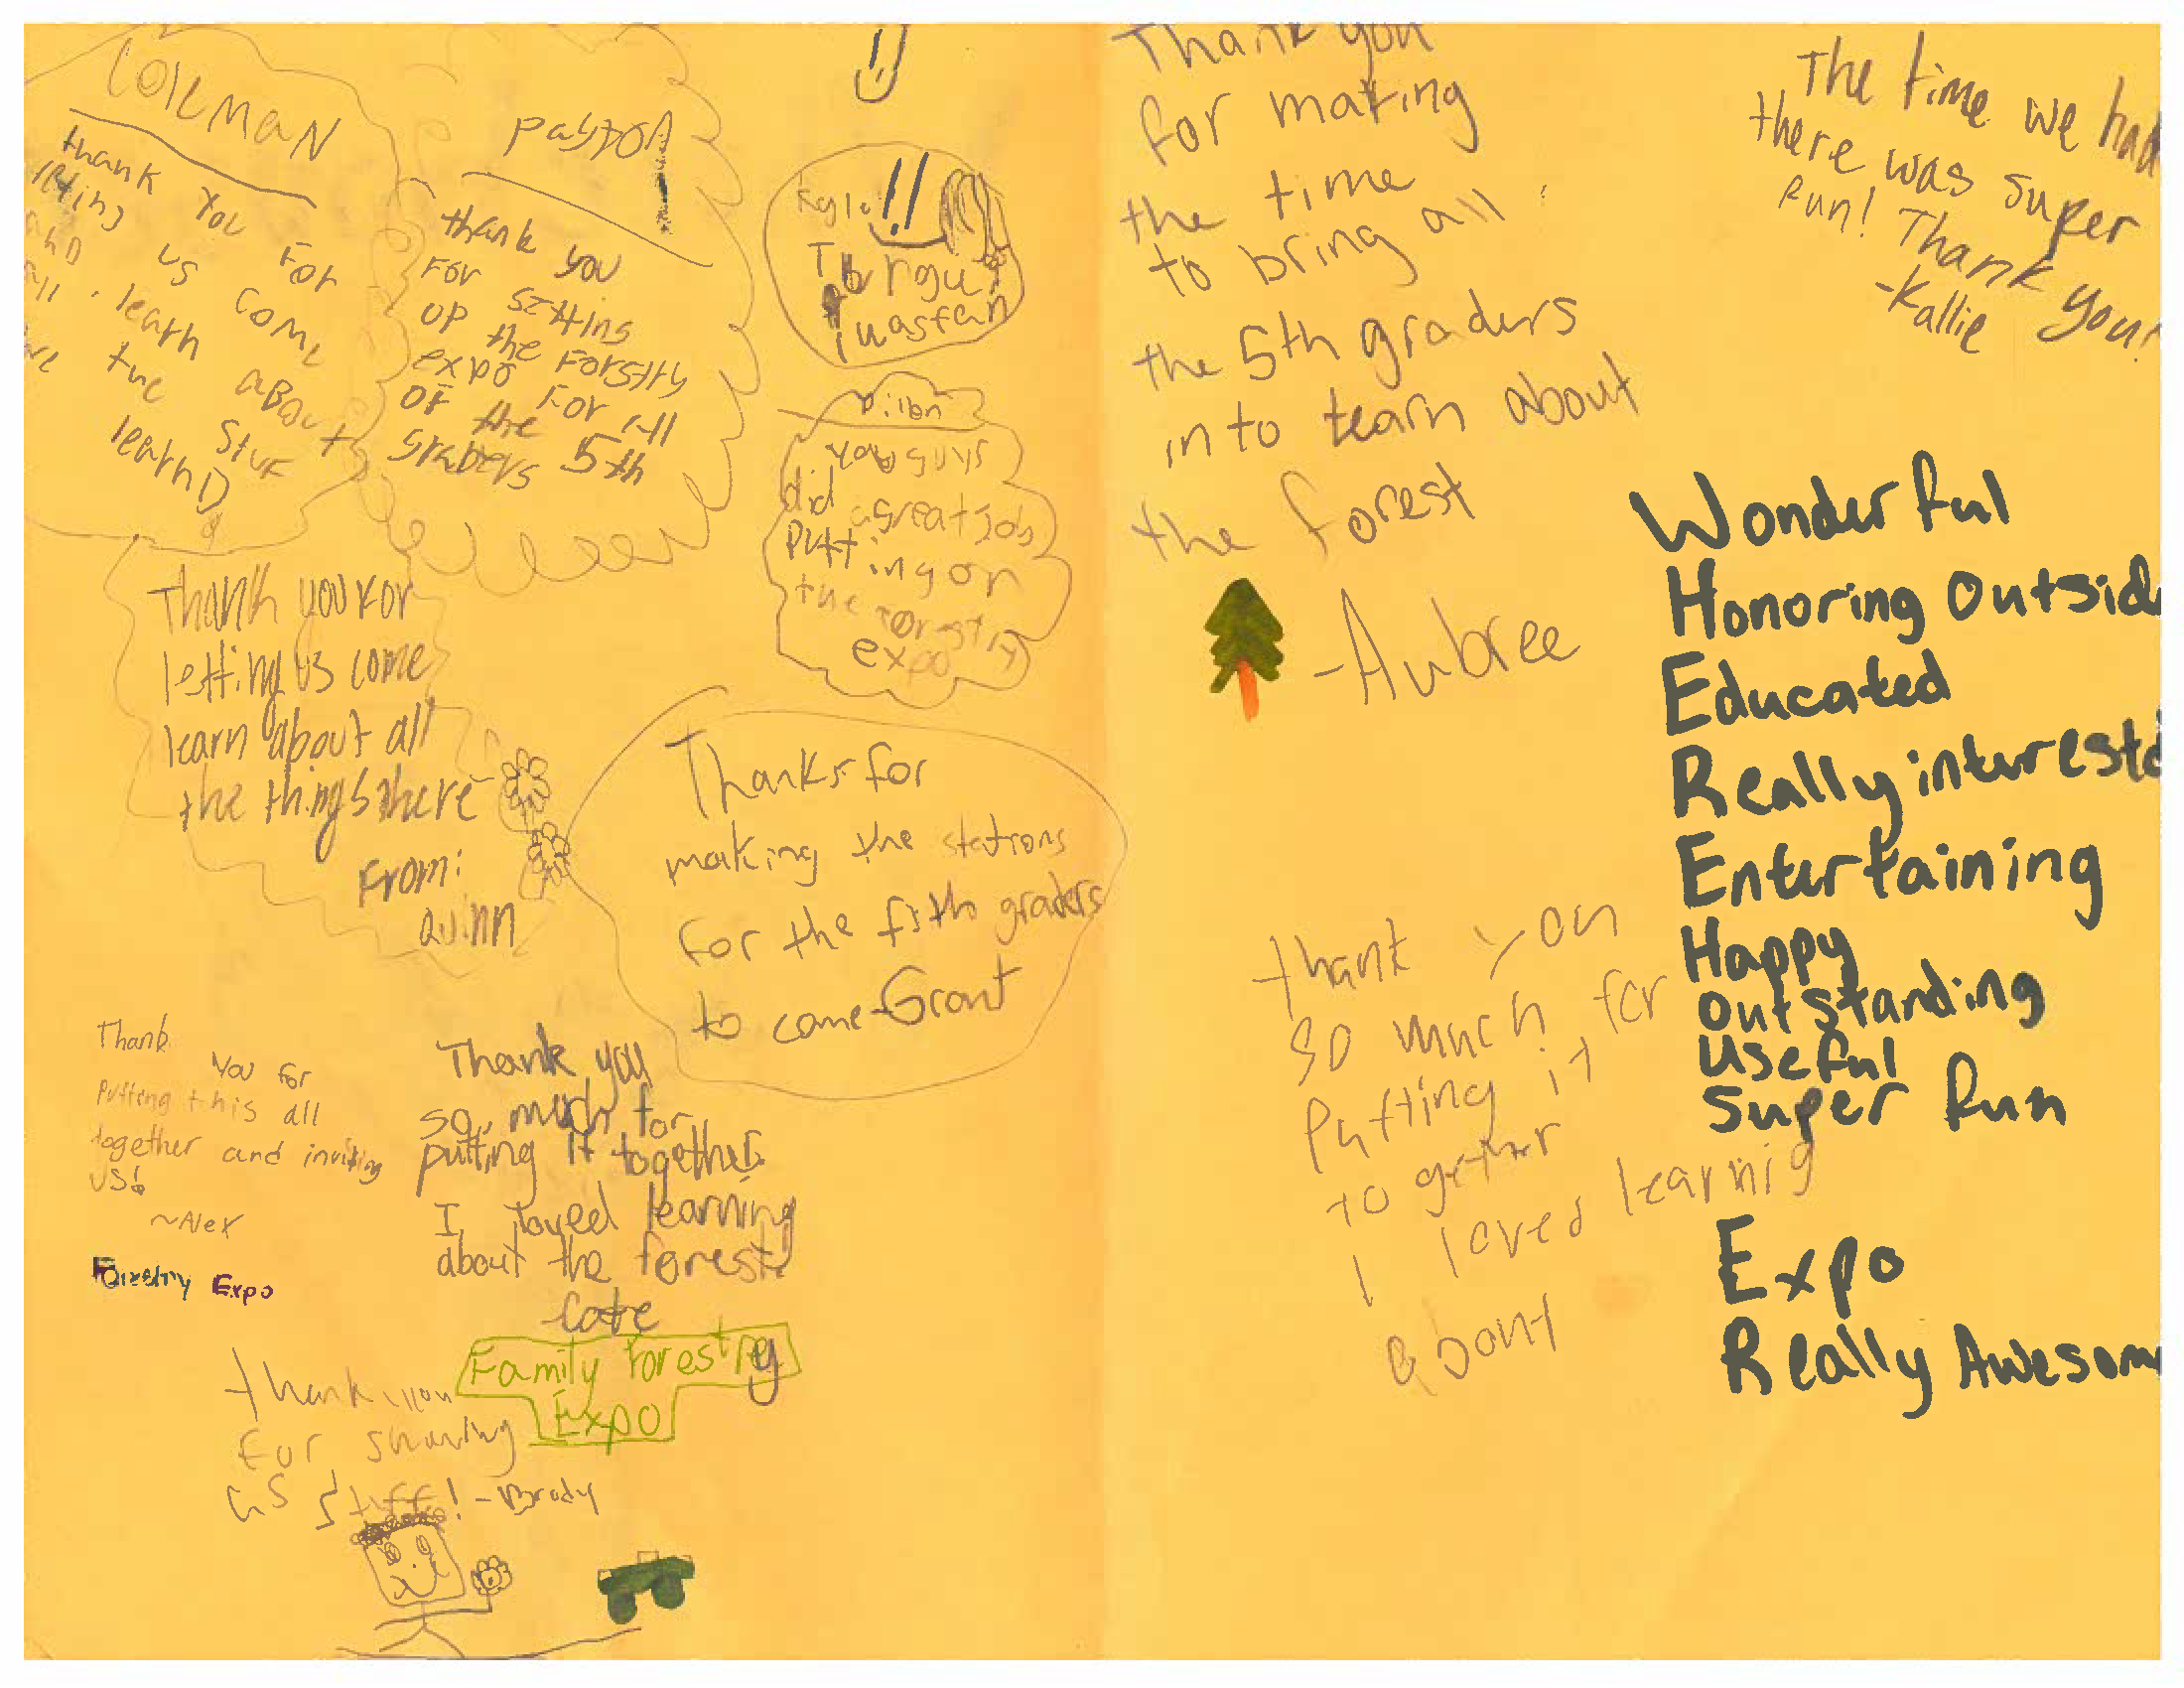 Coleman
thank you for
letting us come
learn about
the stuf
learnD
payston
thank you
for setting
up the Forstry
expo For all
OF the 5th
graders
Kyle
it was fun
Dilon
you guys
did a great job
Putting on
the forestry
expo
Thank you for
letting us come
learn about all
the things here
From:
Quinn
Thanks for
making the stations
for the fifth graders
to come-Grant
Thank
You for
Putting this all
together and inviting
us!
~Alex
Foresty Expo
Thank you
so much for
putting it together.
I loved learning
about the forest.
Cate
Family forestry
Expo
thank you
For showing
us stuff! -Brody
Thank you
for making
the time
to bring all
the 5th graders
in to learn about
the forest
-Aubree
The time we had
there was super
fun! Thank you!
-Kallie
thank you
so much for
Putting it
together
I loved learnig
about
Wonderful
Honoring Outside
Educated
Really interest
Entertaining
Happy
Outstanding
Useful
Super fun
Expo
Really Awesome